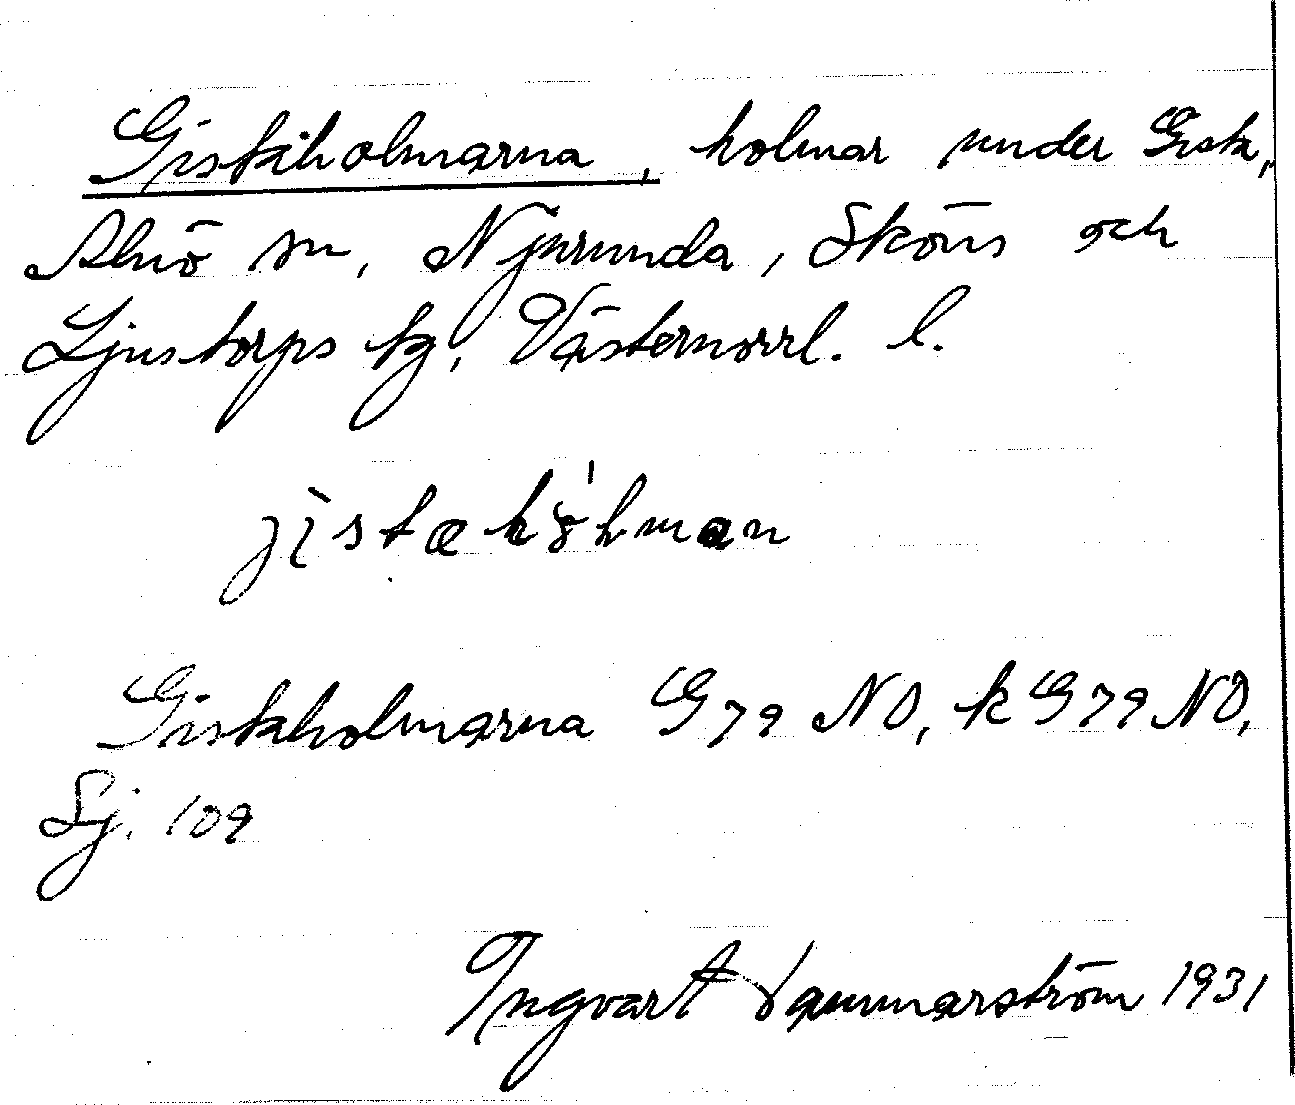 Gistaholmarna, holmar under Gista,
Alnö sn, Njurunda, Sköns och
Ljustorps tg, Västernorrl. l.
jistahòlman
Gistaholmarna G79 NO, k G79 NO,
Sj. 109
Ingvart Hammarström 1931